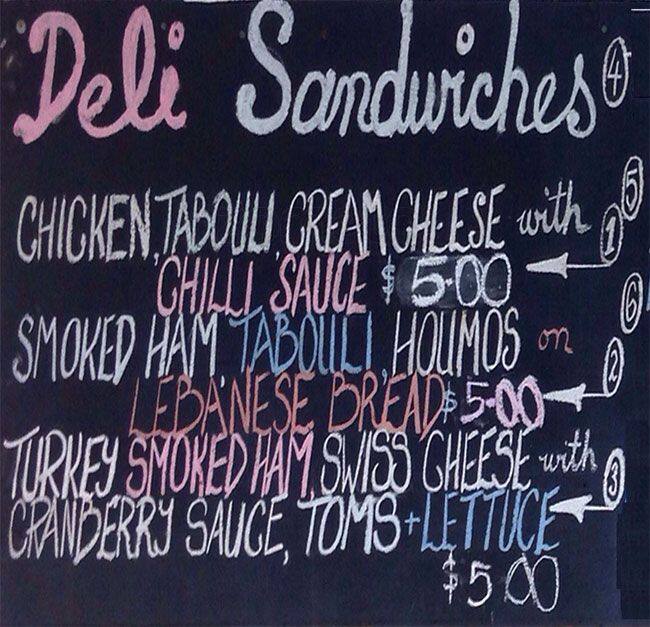 Deli Sandwiches 4
CHICKEN, TABOULI, CREAM CHEESE with 1 5
CHILLI SAUCE $5.00
SMOKED HAM, TABOULI, HOUMOS on 6
LEBANESE BREAD $5.00 2
TURKEY SMOKED HAM, SWISS CHEESE with 3
CRANBERRY SAUCE, TOMS + LETTUCE
$5.00